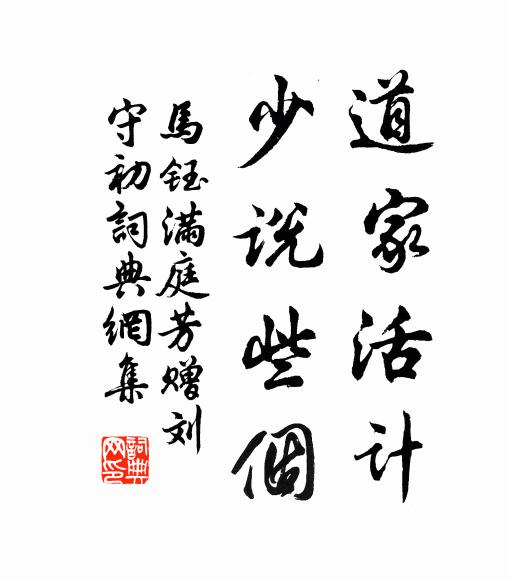 道家活计
少说些個
馬鈺满庭芳赠刘
守初詞典網集
詞典网印